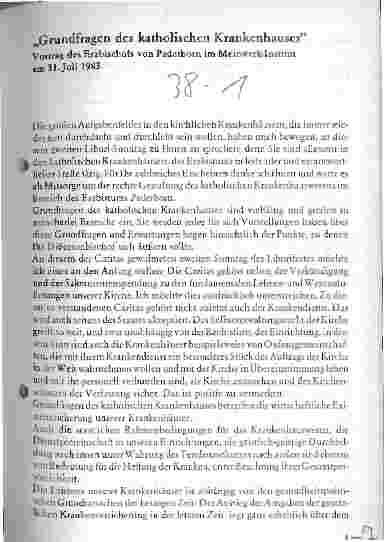 „Grundfragen des katholischen Krankenhauses“
Vortrag des Erzbischofs von Paderborn im Meinwerk-Institut
am 31. Juli 1985
38-1
Die großen Aufgabenfelder in den kirchlichen Krankenhäusern, die immer wie-
der neu durchdacht und durchlebt sein wollen, haben mich bewogen, an die-
sem zweiten Libori-Sonntag zu Ihnen zu sprechen, denn Sie sind allesamt in
den katholischen Krankenhäusern des Erzbistums in leitender und verantwort-
licher Stelle tätig. Für Ihr zahlreiches Erscheinen danke ich Ihnen und werte es
als Mitsorge um die rechte Gestaltung des katholischen Krankenhauswesens im
Bereich des Erzbistums Paderborn.
Grundfragen des katholischen Krankenhauses sind vielfältig und greifen in
Bereiche ein. Sie werden jeder für sich Vorstellungen haben über
diese Grundfragen und Erwartungen hegen hinsichtlich der Punkte, zu denen
Ihr Diözesanbischof sich äußern sollte.
An diesem der Caritas gewidmeten zweiten Sonntag des Liborifestes möchte
ich eines an den Anfang stellen: Die Caritas gehört neben der Verkündigung
und der Sakramentenspendung zu den fundamentalen Lebens- und
unserer Kirche. Ich möchte dies ausdrücklich unterstreichen. Zu die-
ser so verstandenen Caritas gehört nicht zuletzt auch der Krankendienst. Das
wird auch seitens des Staates akzeptiert. Das Selbstverwaltungsrecht der Kirche
greift so weit, und zwar unabhängig von der Rechtsform der Einrichtung, in die-
sem Sinn sind auch die Krankenhäuser beispielsweise von Ordensgemeinschaf-
ten, die mit ihrem Krankendienst ein besonderes Stück des Auftrags der Kirche
in der Welt wahrnehmen wollen und mit der Kirche in Übereinstimmung leben
und mit ihr personell verbunden sind, als Kirche anzusehen und des Kirchen-
der Verfassung sicher. Das ist positiv zu vermerken.
Grundfragen des katholischen Krankenhauses betreffen die wirtschaftliche Exi-
stenzsicherung unserer Krankenhäuser.
Auch die staatlichen Rahmenbedingungen für das Krankenhauswesen, die
Dienstgemeinschaft in unseren Einrichtungen, die geistlich-geistige Durchbil-
dung nach innen unter Wahrung des Tendenzschutzes nach außen sind
von Bedeutung für die Heilung der Kranken, unter Beachtung ihrer Gesamtper-
sönlichkeit.
Die Existenz unserer Krankenhäuser ist abhängig von den gesundheitspoliti-
schen Grundansichten der heutigen Zeit. Der Anstieg der Ausgaben der gesetz-
lichen Krankenversicherung in der letzten Zeit liegt ganz erheblich über dem